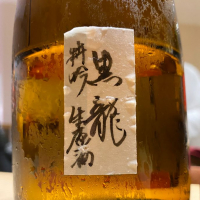 黒龍
特吟
生原酒